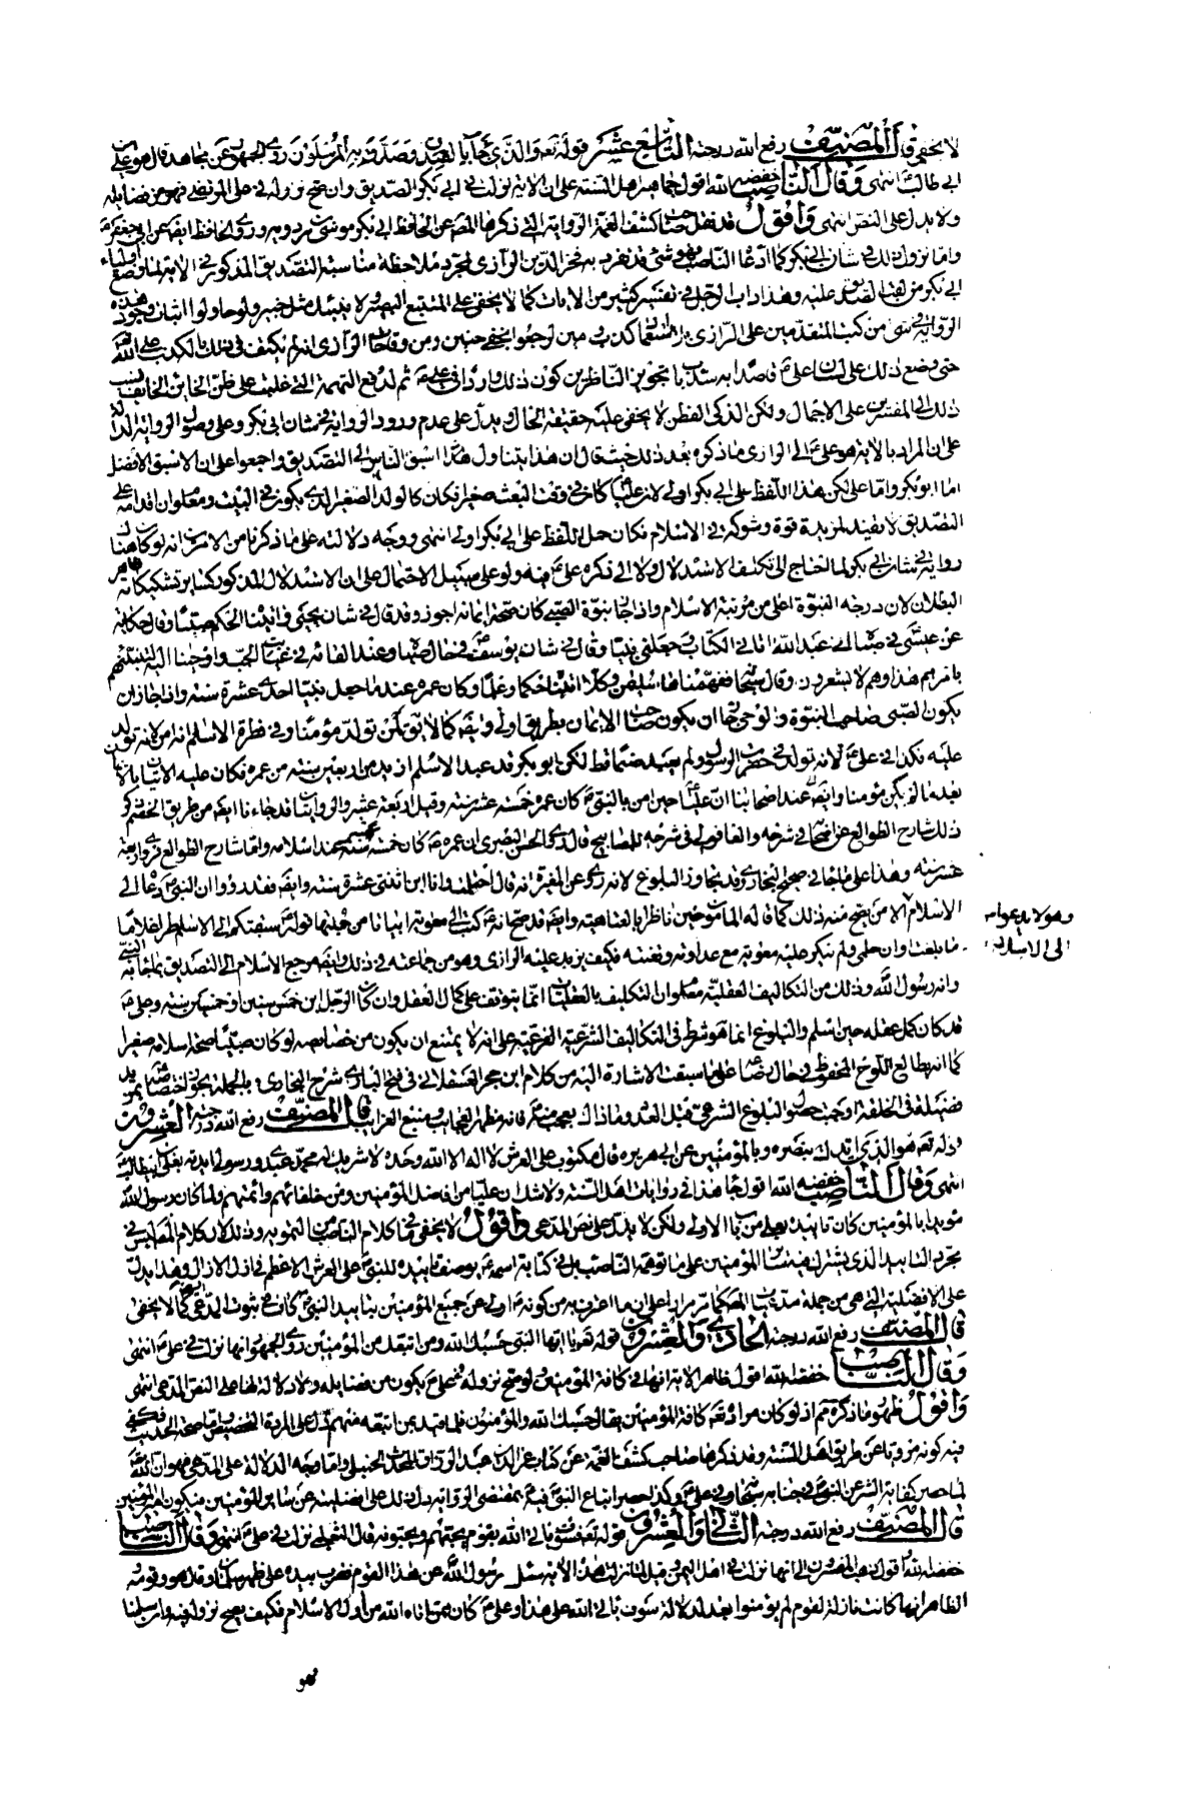 لا يخفى قال المصنّف رفع الله درجته التاسع عشر قوله تعالى والذي جاء بالصدق وصدّق به المرسلون روى الجمهور عن مجاهد قال هو علي بن
ابي طالب انتهى وقال الناصب خفضه الله اقول جماهير اهل السنة على ان الاية نزلت في ابي بكر الصديق وان صح نزوله في علي المرتضى فهو من فضايله
ولا يدل على النص انتهى واقول قد نقل صاحب كشف الغمة الرواية التي ذكرها المص عن الحافظ ابي بكر موسى بن مردويه وروى الحافظ ايضا عن ابي جعفر ع
واما نزول ذلك في شان ابي بكر كما ادعاه الناصب فهو شيء قد تفرد به فخر الدين الرازي لمجرد ملاحظة مناسبة التصديق المذكور في الاية لما وضع اولياء
ابي بكر من لقب الصديق عليه وهذا داب الرجل في تفسير كثير من الايات كما لا يخفى على المتتبع البصير ولا ينبئك مثل خبير ولو حاولوا اثبات وجود هذه
الرواية في شيء من كتب المتقدمين على الرازي كذب ومين لرجعوا بخفي حنين ومن وقاحات الرازي انه لم يكتف في ذلك بالكذب على الله
حتى وضع ذلك على لسان علي ع قاصدا به سد باب تجويز الناظرين كون ذلك واردا في علي ع ثم لدفع التهمة التي غلبت على ظن الخاين الخايف نسب
ذلك الى المفسرين على الاجمال ولكن الذكي الفطن لا يخفى عليه حقيقة الحال ويدل على عدم ورود الرواية في شان ابي بكر وعلى وصول الرواية الدالة
على ان المراد بالاية هو علي ع الى الرازي ما ذكره بعد ذلك حيث قال ان هذا يتناول اسبق الناس الى التصديق واجمعوا على ان الاسبق الافضل
اما ابو بكر واما علي لكن هذا اللفظ على ابي بكر اولى لان عليا كان في وقت البعث صغيرا فكان كالولد الصغير الذي يكون في البيت ومعلوم ان اقدامه على
التصديق لا يفيد لمزيد قوة وشوكة في الاسلام فكان حمل اللفظ على ابي بكر اولى انتهى ووجه دلالته على ما ذكرنا من الامرين انه لو كان هناك
رواية في شان ابي بكر لما احتاج الى تكلف الاستدلال ولا الى ذكره علي ع فيه ولو على سبيل الاحتمال على ان الاستدلال المذكور كساير تشكيكاته ظاهر
البطلان لان درجة النبوة اعلى من مرتبة الاسلام واذا جاز نبوة الصبي كان صحة ايمانه اجوز وقد قال في شان يحيى واتيناه الحكم صبيا وقال حكاية
عن عيسى في صباه اني عبد الله اتاني الكتاب وجعلني نبيا وقال في شان يوسف في حال صباه وعند القائه في غيابت الجب واوحينا اليه لتنبئنهم
بامرهم هذا وهم لا يشعرون وقال سبحانه ففهمناها سليمن وكلا اتيناه حكما وعلما وكان عمره عند ما جعل نبيا احدى عشرة سنة واذا جاز ان
يكون الصبي صاحب النبوة والوحي جاز ان يكون صاحب الايمان بطريق اولى وايضا كما لا يق لمن تولد مؤمنا وفي فطرة الاسلام انه امن لانه تولد
عليه فكذا في علي ع لانه تولد في حضرت الرسول ولم يعبد صنما قط لكن ابو بكر قد عبد الاصنام ازيد من اربعين سنة من عمره فكان عليه الاتيان بالايمان
بعد ما لم يكن مؤمنا وايضا عند اصحابنا ان عليا حين امن بالنبي ع كان عمره خمسة عشر سنة وقيل اربعة عشر والروايتان قد جاءنا ايضا من طريق الخصم ذكر
ذلك شارح الطوالع في شرحه والعاقولي في شرحه للمصابيح قال روى الحسن البصري ان عمره ع كان خمسة عشر سنة عند اسلامه واما شارح الطوالع فروى اربعة
عشر سنة وهذا على ما جاء في صحيح البخاري قد تجاوز البلوغ لانه روى عن المغيرة انه قال احتلمت وانا ابن اثنتي عشرة سنة وايضا فقد رووا ان النبي ع دعاه الى
الاسلام وهو لا يدعو احدا الى الاسلام الا من يصح منه ذلك كما قاله المامون حين ناظر ابا العتاهية وايضا قد صح انه ع كتب الى معوية ابياتا من جملتها قوله ع سبقتكم الى الاسلام طرا غلاما
ما بلغت اوان حلمي ولم ينكر عليه معوية مع عداوته وبغضه فكيف يزيد عليه الرازي وهو من جماعته في ذلك وايضا مرجع الاسلام الى التصديق بما جاء به النبي
وانه رسول الله وذلك من التكاليف العقلية ومعلوم ان التكليف بالعقليات انما يتوقف على كمال العقل وان كان الرجل ابن خمس سنين او خمسين سنة وعلي ع
قد كان كمل عقله حين اسلم والبلوغ انما هو شرط في التكاليف الشرعية الفرعية على انه لا يمتنع ان يكون من خصايصه لو كان صبيا صحة اسلامه صغيرا
كما انه طالع اللوح المحفوظ في حال رضاعه على ما سبقت الاشارة اليه من كلام ابن حجر العسقلاني في فتح الباري شرح البخاري بالجملة يجوز اختصاصه بمزيد
فضيلة في الخلقة اوجبت حصول البلوغ الشرعي قبل العدد وما ذاك بعجب منه فانه مظهر العجايب ومنبع الغرايب قال المصنّف رفع الله درجته العشرون
قوله تعالى هو الذي ايدك بنصره وبالمؤمنين عن ابي هريرة قال مكتوب على العرش لا اله الا الله وحده لا شريك له محمد عبدي ورسولي ايدته بعلي بن ابي طالب
انتهى وقال الناصب خفضه الله اقول جاء هذا في روايات اهل السنة ولا شك ان عليا من افاضل المؤمنين ومن خلفائهم وائمتهم ولما كان رسول الله
مؤيدا بالمؤمنين كان تاييده بعلي من باب الاولى ولكن لا يدل على نص المدعى واقول لا يخفى ما في كلام الناصب من التمويه وذلك لان كلام المص ليس في
مجرد التاييد الذي يشترك فيه ساير المؤمنين على ما توهمه الناصب بل في كتابة اسمه ع بوصف تاييده للنبي ع على العرش الاعظم في ازل الازال وهذا يدل
على الافضلية التي هي من جملة مدعيات المص كما مر مرارا على ان ما اعترف به من كونه ع اولى عن جميع المؤمنين بتاييد النبي ع كاف في ثبوت المدعى ايضا كما لا يخفى
قال المصنّف رفع الله درجته الحادي والعشرون قوله تعالى يا ايها النبي حسبك الله ومن اتبعك من المؤمنين روى الجمهور انها نزلت في علي ع انتهى
وقال الناصب خفضه الله اقول ظاهر الاية انها في كافة المؤمنين ولو صح نزوله في علي ع يكون من فضايله ولا دلالة لها على النص المدعى انتهى
واقول ظهور ما ذكره ثم اذ لو كان مراده تعالى كافة المؤمنين لقال حسبك الله والمؤمنون فلما قيد بمن اتبعه منهم دل على المزية الخصوصية واما صحة الحديث فيكفي
فيه كونه مرويا عن طريق اهل السنة وقد ذكرها صاحب كشف الغمة عن كتاب عز الدين عبد الرزاق المحدث الحنبلي واما وجه الدلالة على المدعى فهو ان الله
لما حصر كفاية الشر عن النبي ع في جنابه سبحانه وفي علي ع وكذا حصر اتباع النبي فيه ع بمقتضى الرواية دل ذلك على افضليته عن ساير المؤمنين فيكون امير المؤمنين
قال المصنّف رفع الله درجته الثاني والعشرون قوله تعالى فسوف ياتي الله بقوم يحبهم ويحبونه قال الثعلبي نزلت في علي ع انتهى وقال الناصب
خفضه الله اقول ذهب المفسرون الى انها نزلت في اهل اليمن وقيل لما نزلت هذه الاية سئل رسول الله عن هذا القوم فضرب بيده على ظهر سلمان وقال هو وقومه
الظاهر انها كانت نازلة لقوم لم يؤمنوا بعد لدلالة سوف ياتي الله على هذا وعلي ع كان ممن اتاه الله من اول الاسلام فكيف يصح نزوله فيه وان سلمنا
فهو
وهو لا يدعو احدا
الى الاسلام